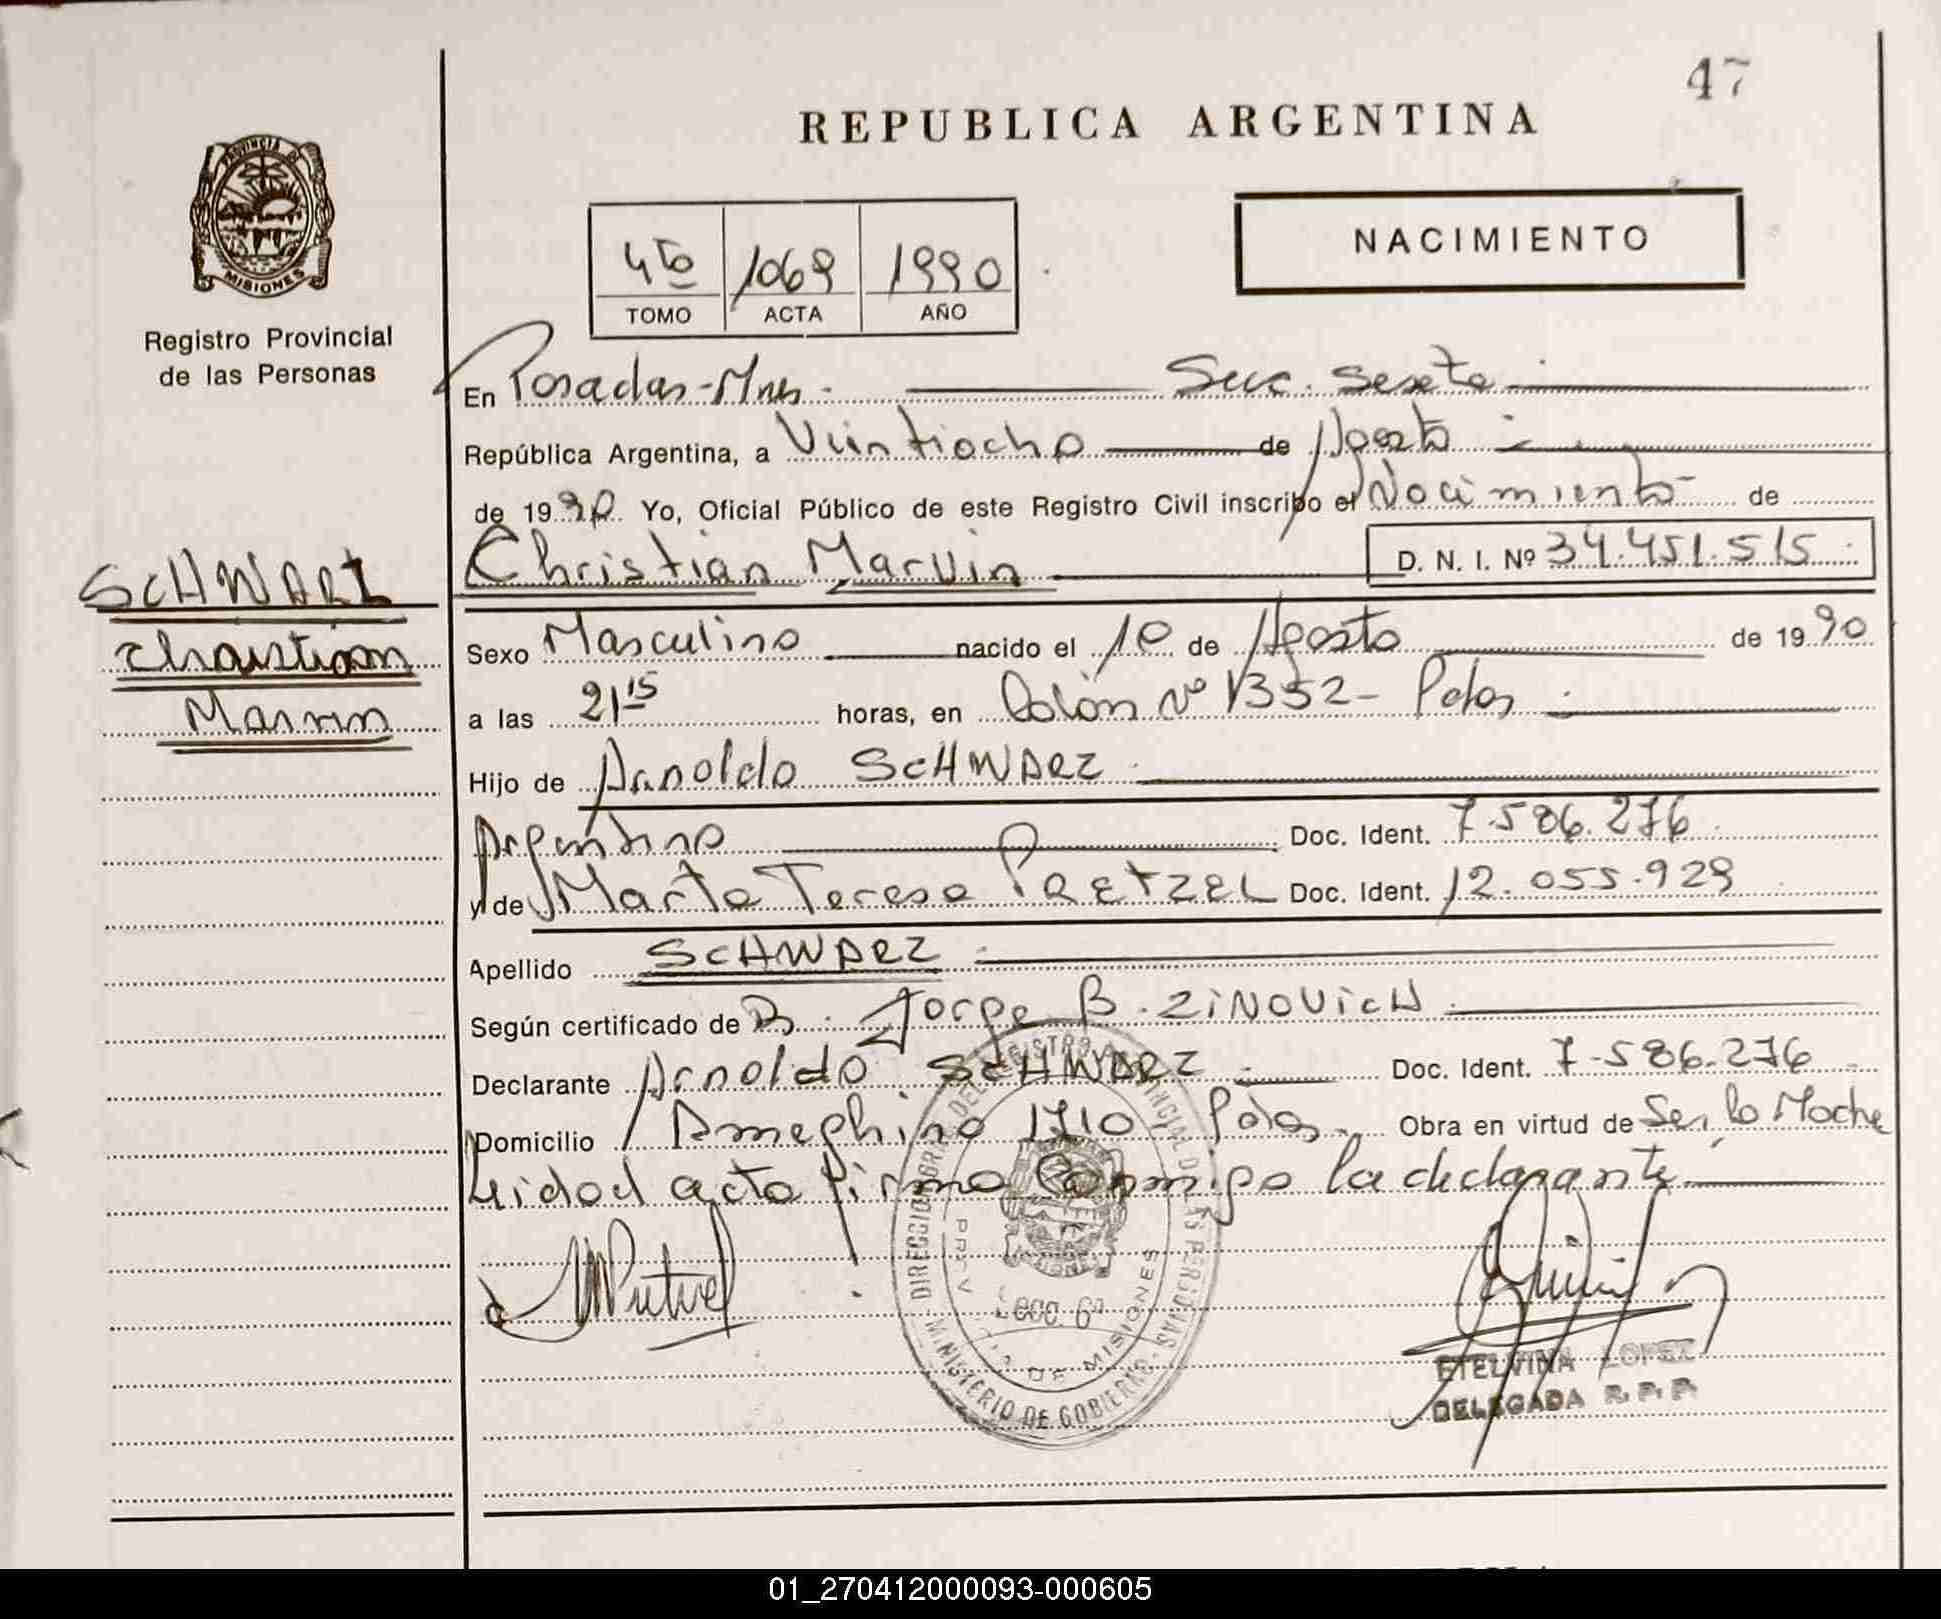 47
REPUBLICA ARGENTINA
PROVINCIA DE
MISIONES
Registro Provincial
de las Personas
NACIMIENTO
4to 1069 1990
TOMO ACTA AÑO
En Posadas-Mnes. Secc. Sexta
República Argentina, a Veintiocho de Agosto
de 1990 Yo, Oficial Público de este Registro Civil inscribo el Nacimiento de
Christian Marvin D. N. I. Nº 34.451.515
SCHWARZ
Christian
Marvin
Sexo Masculino nacido el 10 de Agosto de 1990
a las 21 15 horas, en Colón Nº 1352- Pdas
Hijo de Arnoldo SCHWARZ
Argentino Doc. Ident. 7.586.276
y de Marta Teresa PAETZEL Doc. Ident. 12.055.929
Apellido SCHWARZ
Según certificado de D. Jorge B. ZINOVICH
Declarante Arnoldo SCHWARZ Doc. Ident. 7.586.276
Domicilio Ameghino 1710 Pdas. Obra en virtud de Ser, la
acta firma conmigo la declarante
DIRECCION GRAL DEL REGISTRO PROVINCIAL DE LAS PERSONAS
MINISTERIO DE GOBIERNO
DE MISIONES
ETELVINA LOPEZ
DELEGADA R. P. P.
01_270412000093-000605